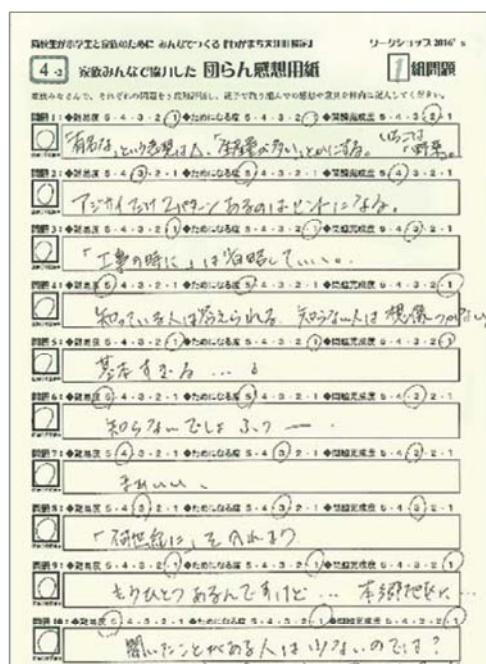 高校生が小学生と家族のために みんなでつくる『わがまち大津
ワークショップ 2016's
4-2 家族みんなで協力した 団らん感想用紙 1組問題
問題1:◆難易度 5・4・3・2・1 ◆ためになる度 5・4・3・2・1 ◆問題完成度 5・4・3・2・1
「有名な」という表現は△。「生産量が多い」とかにする。 いちごは「野菜」
問題2:◆難易度 5・4・3・2・1 ◆ためになる度 5・4・3・2・1 ◆問題完成度 5・4・3・2・1
アジサイだけ2パターンあるのはヒントになる。
問題3:◆難易度 5・4・3・2・1 ◆ためになる度 5・4・3・2・1 ◆問題完成度 5・4・3・2・1
「工事の時に」は省略していい。
問題4:◆難易度 5・4・3・2・1 ◆ためになる度 5・4・3・2・1 ◆問題完成度 5・4・3・2・1
知っている人は答えられる 知らない人は想像つかない
問題5:◆難易度 5・4・3・2・1 ◆ためになる度 5・4・3・2・1 ◆問題完成度 5・4・3・2・1
基本すぎる...
問題6:◆難易度 5・4・3・2・1 ◆ためになる度 5・4・3・2・1 ◆問題完成度 5・4・3・2・1
知らないでしょ ふつー。
問題7:◆難易度 5・4・3・2・1 ◆ためになる度 5・4・3・2・1 ◆問題完成度 5・4・3・2・1
まあいい。
問題8:◆難易度 5・4・3・2・1 ◆ためになる度 5・4・3・2・1 ◆問題完成度 5・4・3・2・1
「何世紀に」を入れよう
問題9:◆難易度 5・4・3・2・1 ◆ためになる度 5・4・3・2・1 ◆問題完成度 5・4・3・2・1
もうひとつあるんですけど... 本郷地区に...
問題10:◆難易度 5・4・3・2・1 ◆ためになる度 5・4・3・2・1 ◆問題完成度 5・4・3・2・1
聞いたことがある人は少ないのでは?